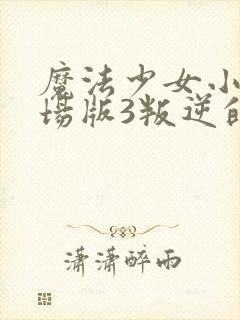 魔法少女小
场版3叛逆的
潇潇醉雨